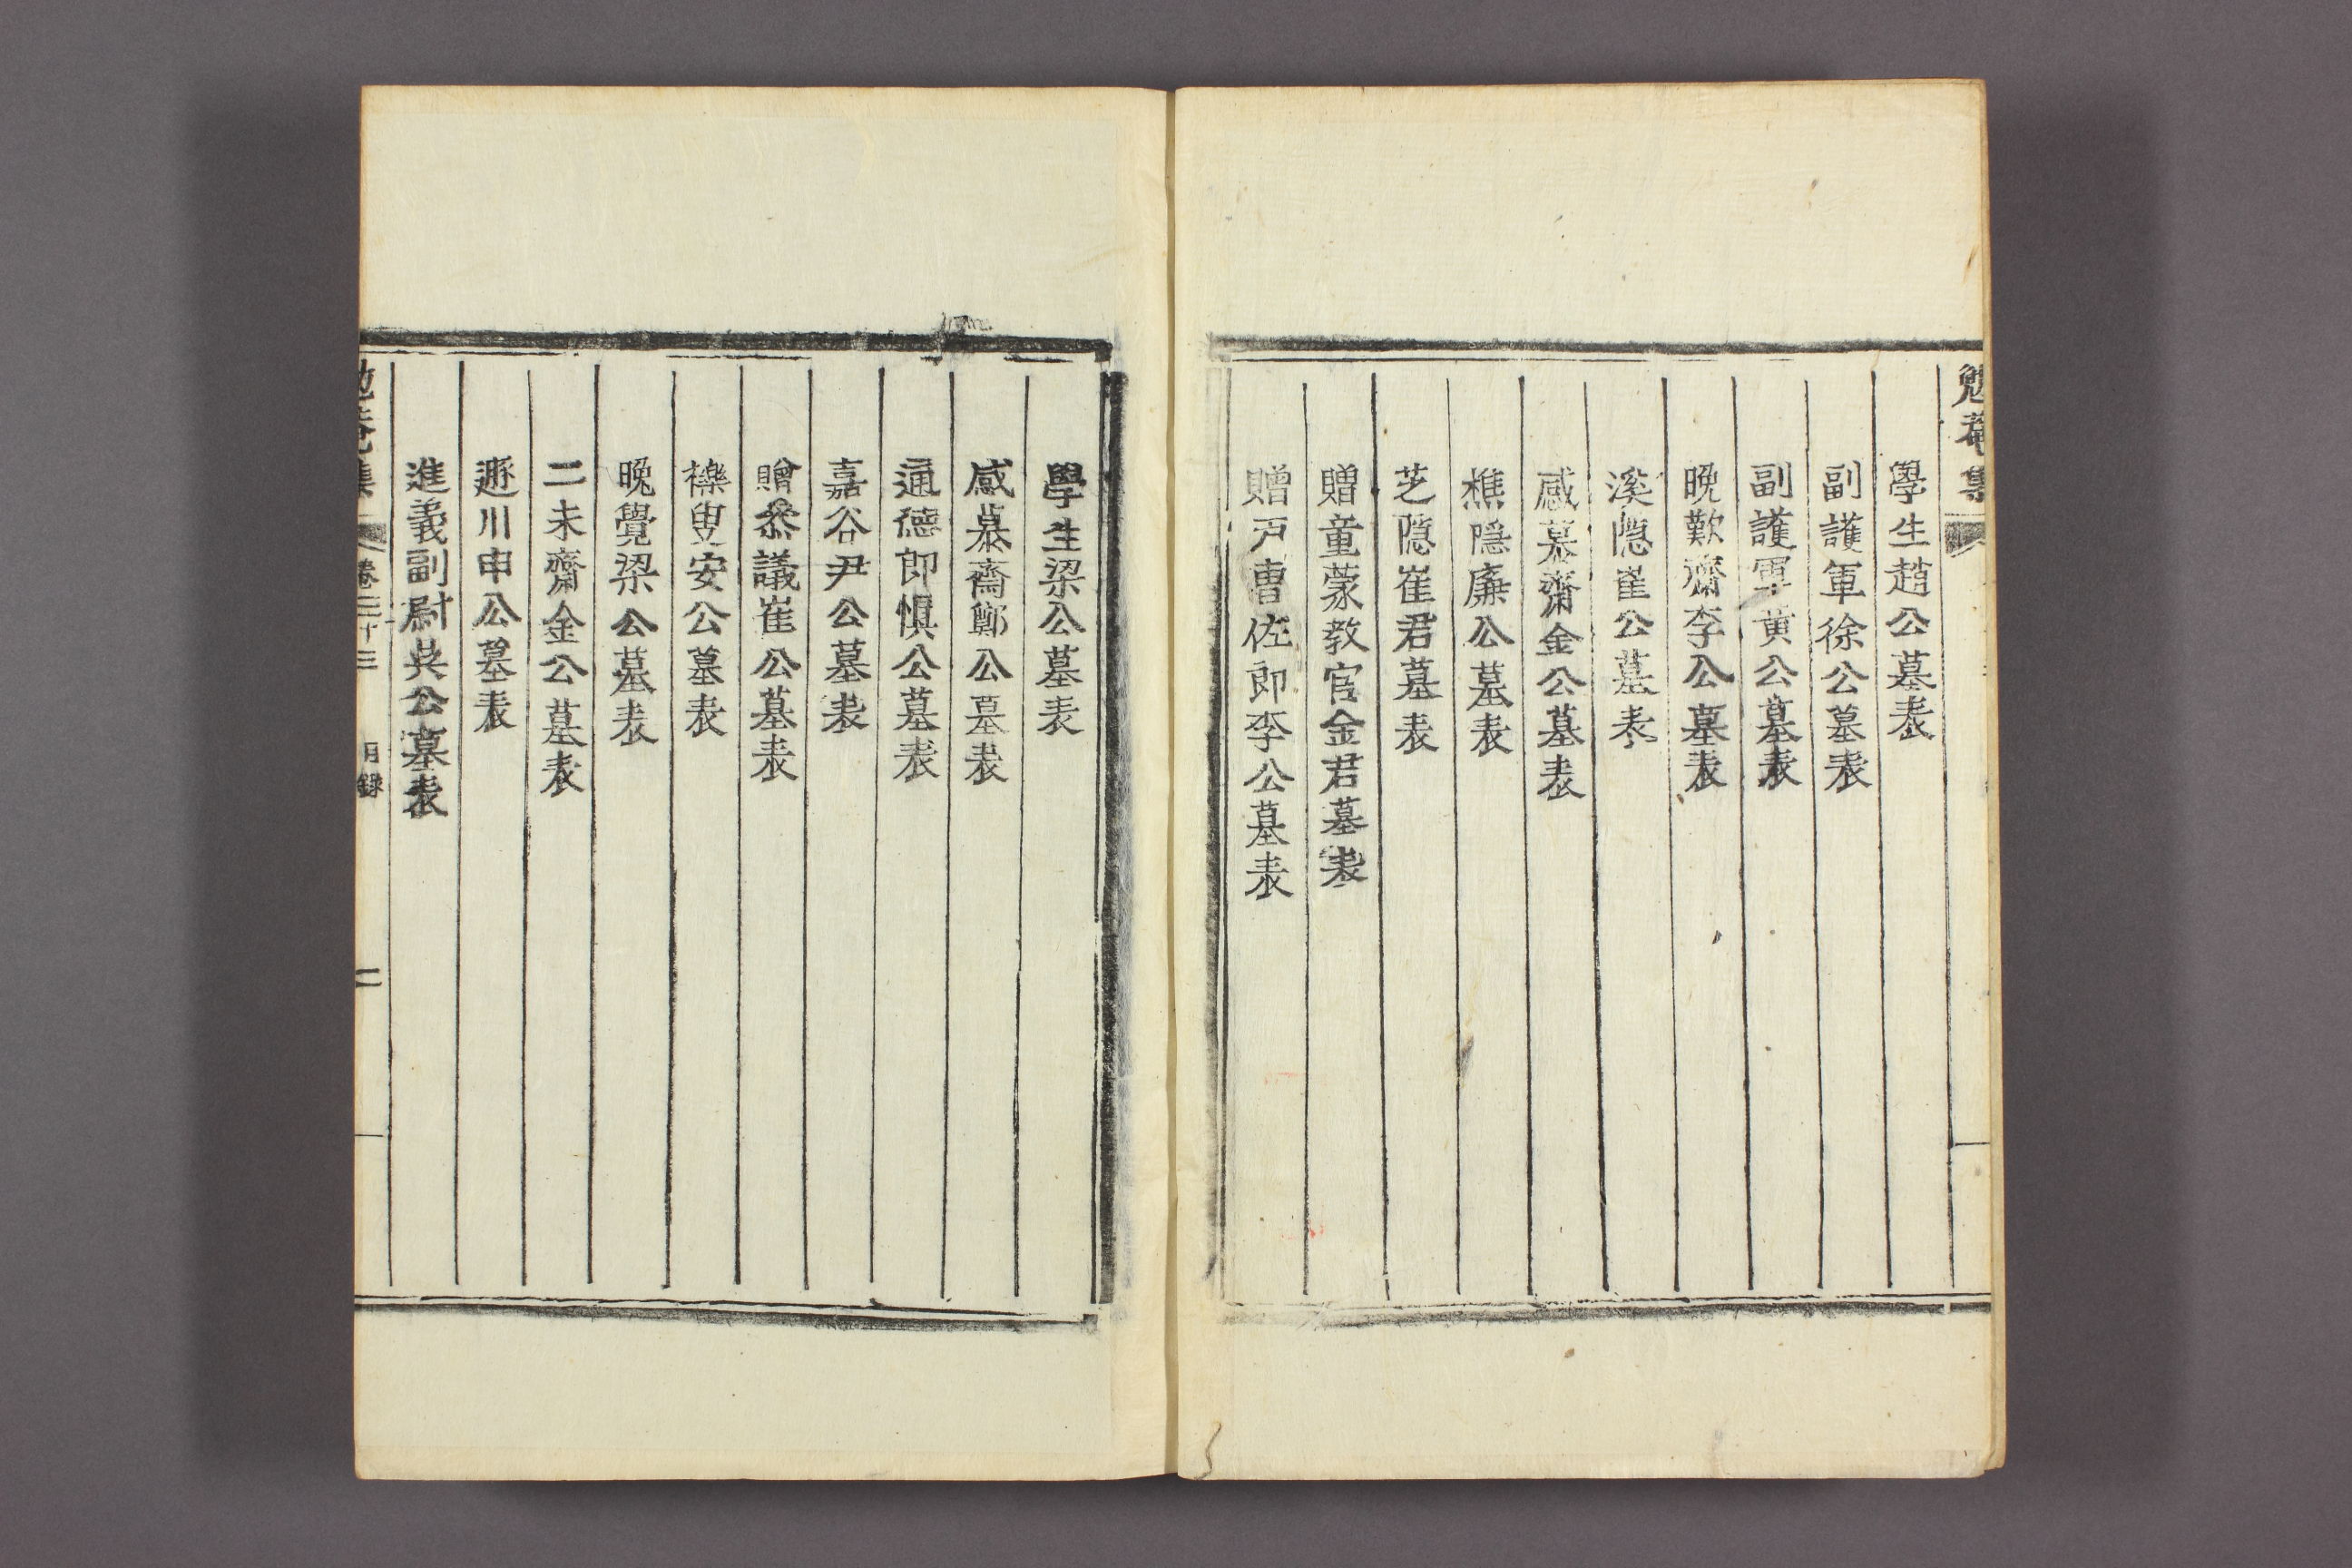 勉菴集
學生趙公墓表
副護軍徐公墓表
副護軍黃公墓表
晩歎齋李公墓表
溪隱崔公墓表
感慕齋金公墓表
樵隱廉公墓表
芝隱崔君墓表
贈童蒙敎官金君墓表
贈戶曹佐郎李公墓表
學生梁公墓表
感慕齋鄭公墓表
通德郎愼公墓表
嘉谷尹公墓表
贈叅議崔公墓表
櫟叟安公墓表
晩覺梁公墓表
二未齋金公墓表
遯川申公墓表
進義副尉吳公墓表
勉菴集 卷三十三 目錄 二